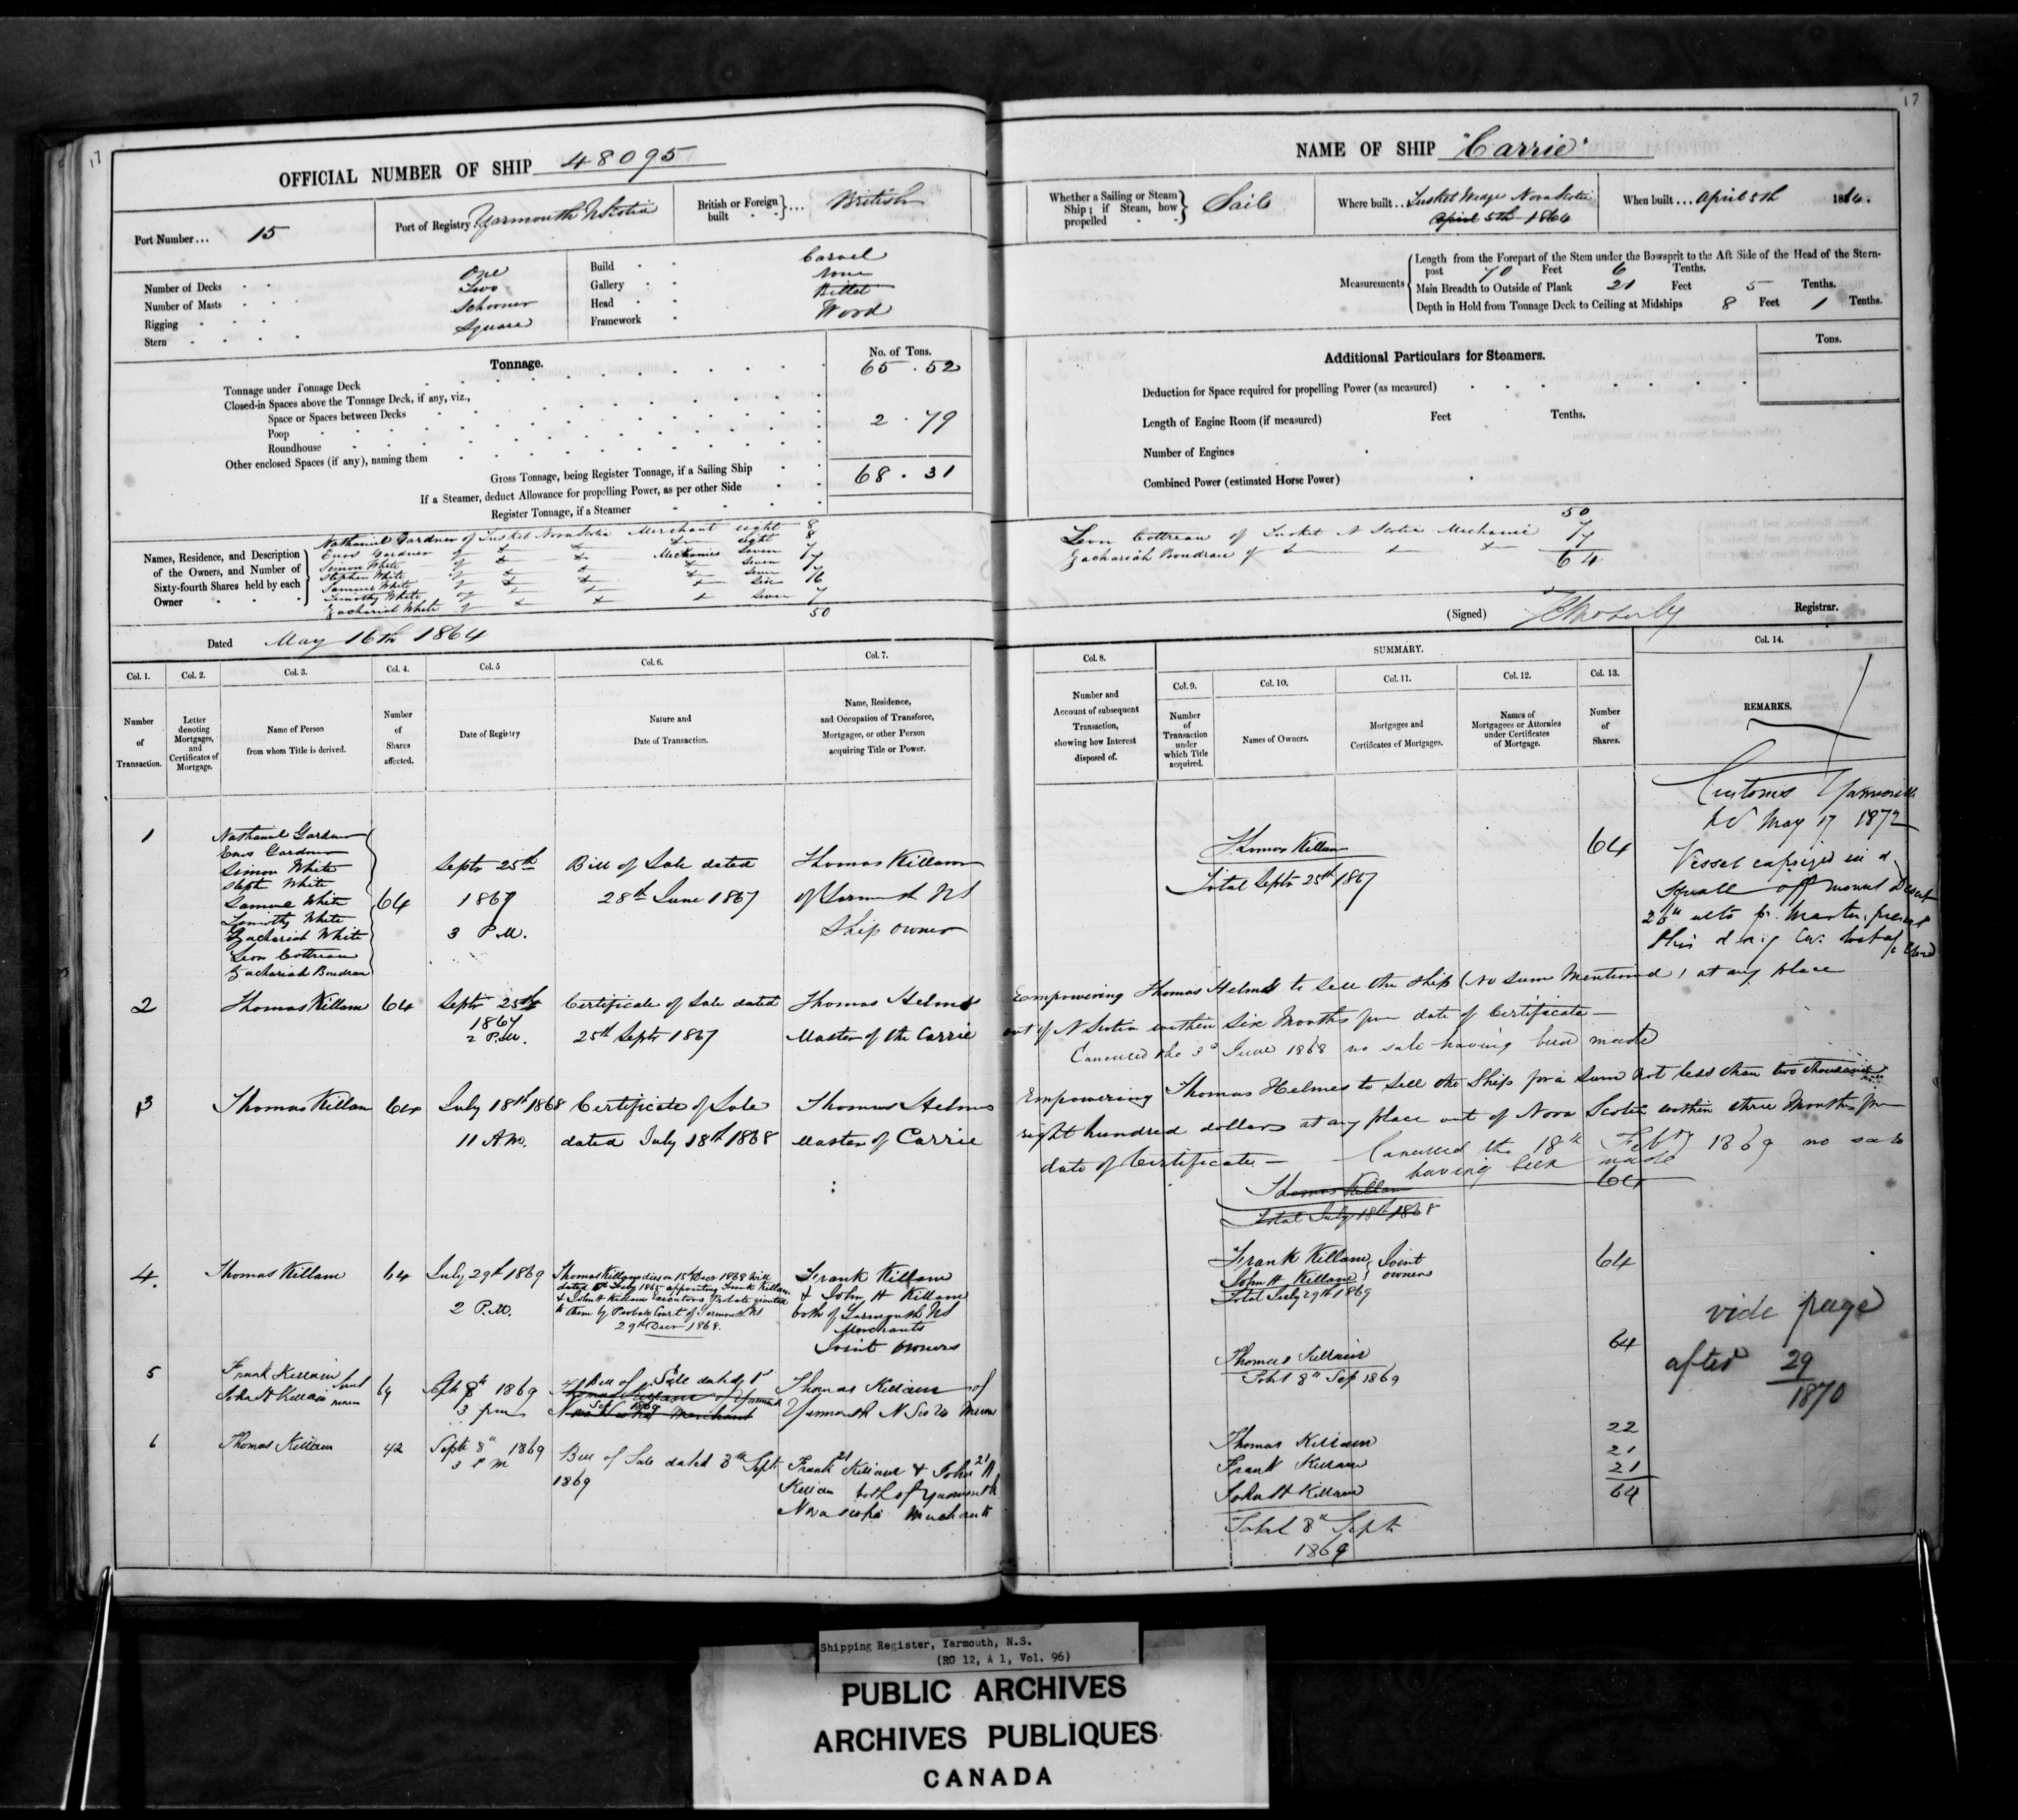 17
OFFICIAL NUMBER OF SHIP 48095
Port Number... 15
Port of Registry Yarmouth NScotia
British or Foreign built ... British
Number of Decks One
Number of Masts Two
Rigging Schooner
Stern Square
Build Carvel
Gallery None
Head Billet
Framework Wood
Tonnage.
No. of Tons.
Tonnage under Tonnage Deck 65.52
Closed-in Spaces above the Tonnage Deck, if any, viz.,
Space or Spaces between Decks
Poop 2.79
Roundhouse
Other enclosed Spaces (if any), naming them
Gross Tonnage, being Register Tonnage, if a Sailing Ship 68.31
If a Steamer, deduct Allowance for propelling Power, as per other Side
Register Tonnage, if a Steamer
Names, Residence, and Description of the Owners, and Number of Sixty-fourth Shares held by each Owner
Nathaniel Gardner of Tusket Nova Scotia Merchant eight 8
Enos Gardner of eight 8
Simon White of Mechanics Seven 7
Stephen White of Seven 7
Samuel White of Seven 7
Timothy White of Six 6
Zachariah White of Seven 7
50
Dated May 16th 1864
Col. 1.
Number of Transaction.
Col. 2.
Letter denoting Mortgages, and Certificates of Mortgage.
Col. 3.
Name of Person from whom Title is derived.
Col. 4.
Number of Shares affected.
Col. 5
Date of Registry
Col. 6.
Nature and Date of Transaction.
Col. 7.
Name, Residence, and Occupation of Transferee, Mortgagee, or other Person acquiring Title or Power.
1
Nathaniel Gardner
Enos Gardner
Simon White
Steph White
Samuel White
Timothy White
Zachariah White
Leon Cottreau
Zachariah Boudrau
64
Septr 25th
1867
3 P.M.
Bill of Sale dated
28th June 1867
Thomas Killam
of Yarmouth NS
Ship owner
2
Thomas Killam
64
Septr 25th
1867
2 P.M.
Certificate of Sale dated
25th Septr 1867
Thomas Helms
Master of the Carrie
3
Thomas Killam
64
July 18th 1868
11 A.M.
Certificate of Sale
dated July 18th 1868
Thomas Helms
Master of Carrie
4.
Thomas Killam
64
July 29th 1869
2 P.M.
Thomas Killam dies on 15th Decr 1868 Will
dated July 1865 appointing Frank Killam
& John H Killam Executors Probate granted
to them by Probate Court of Yarmouth NS
29th Decr 1868.
Frank Killam
& John H Killam
both of Yarmouth NS
Merchants
Joint owners
5
Frank Killam
John H Killam
64
Septr 8th 1869
3 pm
Bill of Sale dated
Sep 1869
Thomas Killam of Yarmouth
Nova Scotia Merchant
Thomas Killam of
Yarmouth N Scotia
6
Thomas Killam
42
Septr 8th 1869
3 P M
Bill of Sale dated 8th Sept
1869
Frank 21 Killam & John 21 H
Killam both of Yarmouth
Nova Scotia Merchants
17
NAME OF SHIP "Carrie"
Whether a Sailing or Steam Ship; if Steam, how propelled Sails
Where built.. Tusket Wedge Nova Scotia
April 5th 1864
When built... April 5th 1864.
Measurements
Length from the Forepart of the Stem under the Bowsprit to the Aft Side of the Head of the Sternpost 70 Feet 6 Tenths.
Main Breadth to Outside of Plank 21 Feet 5 Tenths.
Depth in Hold from Tonnage Deck to Ceiling at Midships 8 Feet 1 Tenths.
Additional Particulars for Steamers.
Tons.
Deduction for Space required for propelling Power (as measured)
Length of Engine Room (if measured) Feet Tenths.
Number of Engines
Combined Power (estimated Horse Power)
50
Leon Cottreau of Tusket N Scotia Mechanic 7
Zachariah Boudrau of 7
64
(Signed) Registrar.
Col. 8.
Number and Account of subsequent Transaction, showing how Interest disposed of.
SUMMARY.
Col. 9.
Number of Transaction under which Title acquired.
Col. 10.
Names of Owners.
Col. 11.
Mortgages and Certificates of Mortgages.
Col. 12.
Names of Mortgagees or Attornies under Certificates of Mortgage.
Col. 13.
Number of Shares.
Col. 14.
REMARKS.
Thomas Killam 64
Total Septr 25th 1867
Customs Yarmouth
May 17 1872
Vessel capsized in a
squall off Mount Desert
Empowering Thomas Helms to sell the Ship (No sum Mentioned) at any place
out of N Scotia within Six Months from date of Certificate
Cancelled the 3d June 1868 no sale having been made
Empowering Thomas Helmes to Sell the Ship for a Sum not less than two thousand
eight hundred dollars at any place out of Nova Scotia within three Months from
date of Certificate Cancelled the 18th Feby 1869 no sale
having been made
Thomas Killam 64
Total July 18th 1868
Frank Killam
John H Killam
Joint owners
64
Total July 29th 1869
Thomas Killam 64
Total 8th Sep 1869
vide page
after 29
1870
Thomas Killam 22
Frank Killam 21
John H Killam 21
64
Total 8th Sept
1869
Shipping Register, Yarmouth, N.S.
(RG 12, A 1, Vol. 96)
PUBLIC ARCHIVES
ARCHIVES PUBLIQUES
CANADA